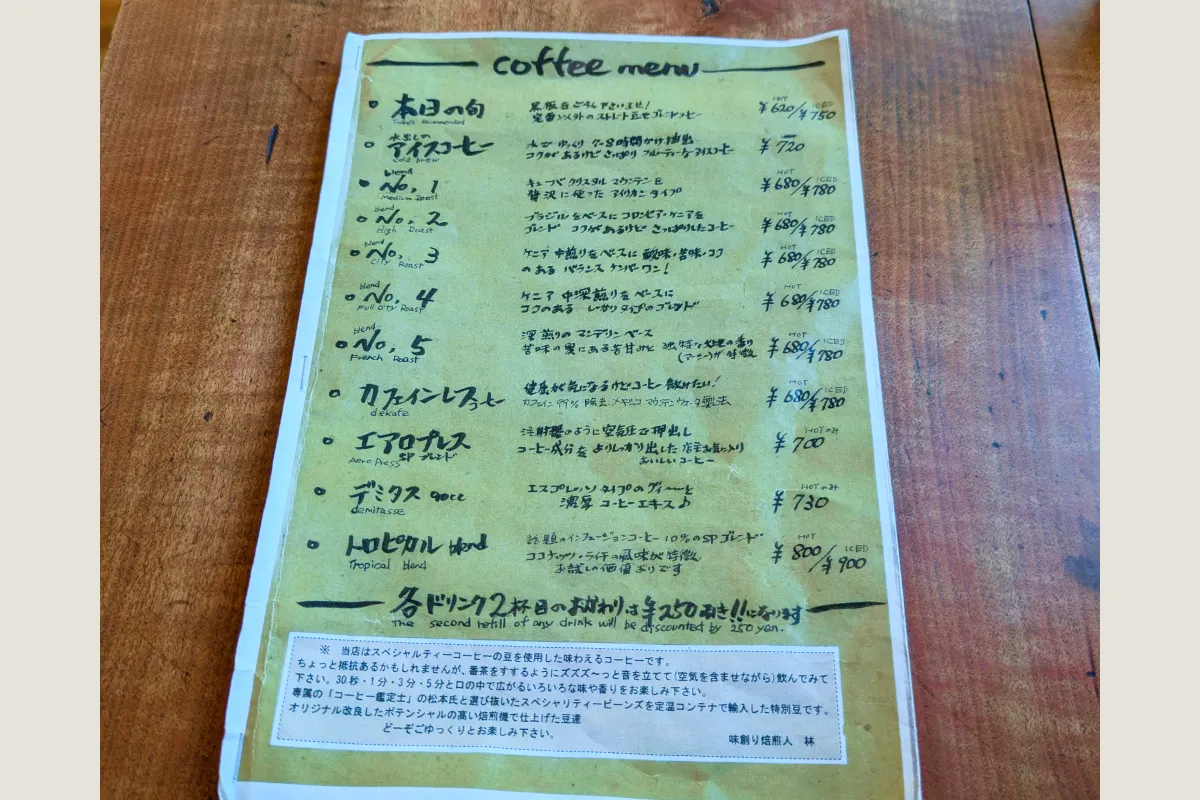 coffee menu
本日の旬
Today's Recommended
黒板をごらん下さいませ!
定番以外のストレート豆やブレンドコーヒー
HOT ICED
¥620/¥750
水出しの
アイスコーヒー
cold brew
水でゆっくり 7~8時間かけ抽出
コクがあるけどさっぱり フルーティーなアイスコーヒー
¥720
blend
No, 1
Medium Roast
キューバ クリスタル マウンテンを
贅沢に使った アメリカンタイプ
HOT ICED
¥680/¥780
blend
No, 2
High Roast
ブラジルをベースに コロンビア・ケニアを
ブレンド コクがあるけど さっぱりしたコーヒー
HOT ICED
¥680/¥780
blend
No, 3
City Roast
ケニア 中煎りをベースに 酸味・苦味・コク
のある バランス ナンバーワン!
HOT ICED
¥680/¥780
blend
No, 4
Full City Roast
ケニア 中深煎りをベースに
コクのある しっかりタイプのブレンド
HOT ICED
¥680/¥780
blend
No, 5
French Roast
深煎りの マンデリン ベース
苦味の奥にある苦甘みと 独特な大地の香り
(アーシー)が特徴
HOT ICED
¥680/¥780
カフェインレスコーヒー
dekafe
健康が気になるけどコーヒー飲みたい!
カフェイン 99% 除去 メキシコ マウンテンウォーター製法
HOT ICED
¥680/¥780
エアロプレス
Aero press SP ブレンド
注射器のように空気圧で押出し
コーヒー成分を よりしっかり出した 店主お気に入り
おいしいコーヒー
HOTのみ
¥700
デミタス 90cc
demitasse
エスプレッソタイプの
濃厚 コーヒーエキス♪
HOTのみ
¥730
トロピカル blend
Tropical blend
話題のインフュージョンコーヒー 10%のSPブレンド
ココナッツ・ライチの風味が特徴
お試しの価値ありです
HOT ICED
¥800/¥900
各ドリンク2杯目のおかわりは¥250引き!!になります
The second refill of any drink will be discounted by 250 yen.
※ 当店はスペシャルティーコーヒーの豆を使用した味わえるコーヒーです。
ちょっと抵抗あるかもしれませんが、番茶をすするようにズズズ~っと音を立てて(空気を含ませながら)飲んでみて
下さい。30秒・1分・3分・5分と口の中で広がるいろいろな味や香りをお楽しみ下さい。
専属の「コーヒー鑑定士」の松本氏と選び抜いたスペシャリティービーンズを定温コンテナで輸入した特別豆です。
オリジナル改良したポテンシャルの高い焙煎機で仕上げた豆達
どーぞごゆっくりとお楽しみ下さい。
味創り焙煎人 林